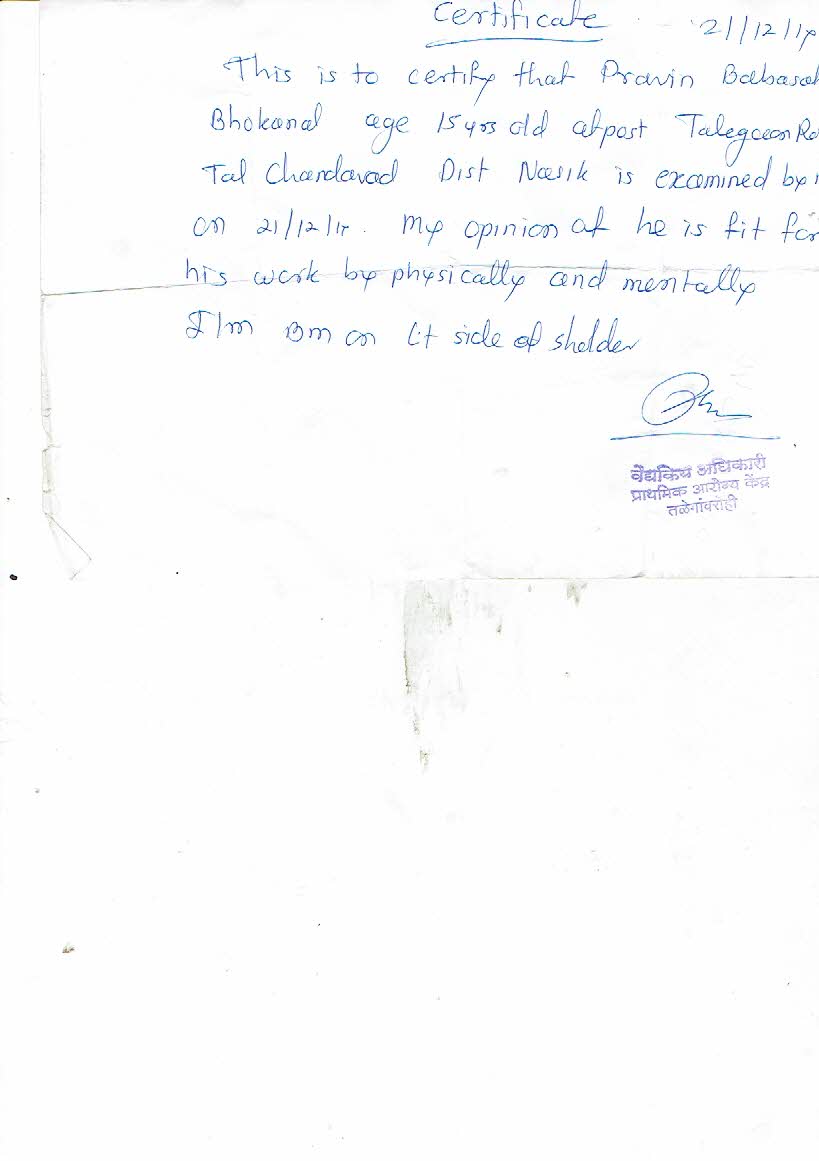 Certificate 21/12/17
This is to certify that Pravin Babasah
Bhokanal age 15 yrs old atpost Talegaon Ro
Tal Chandavad Dist Nasik is examined by
on 21/12/17. My opinion of he is fit for
his work by physically and mentally
I/m Bm on Lt side of sholder
वैद्यकिय अधिकारी
प्राथमिक आरोग्य केंद्र
तळेगांवरोही